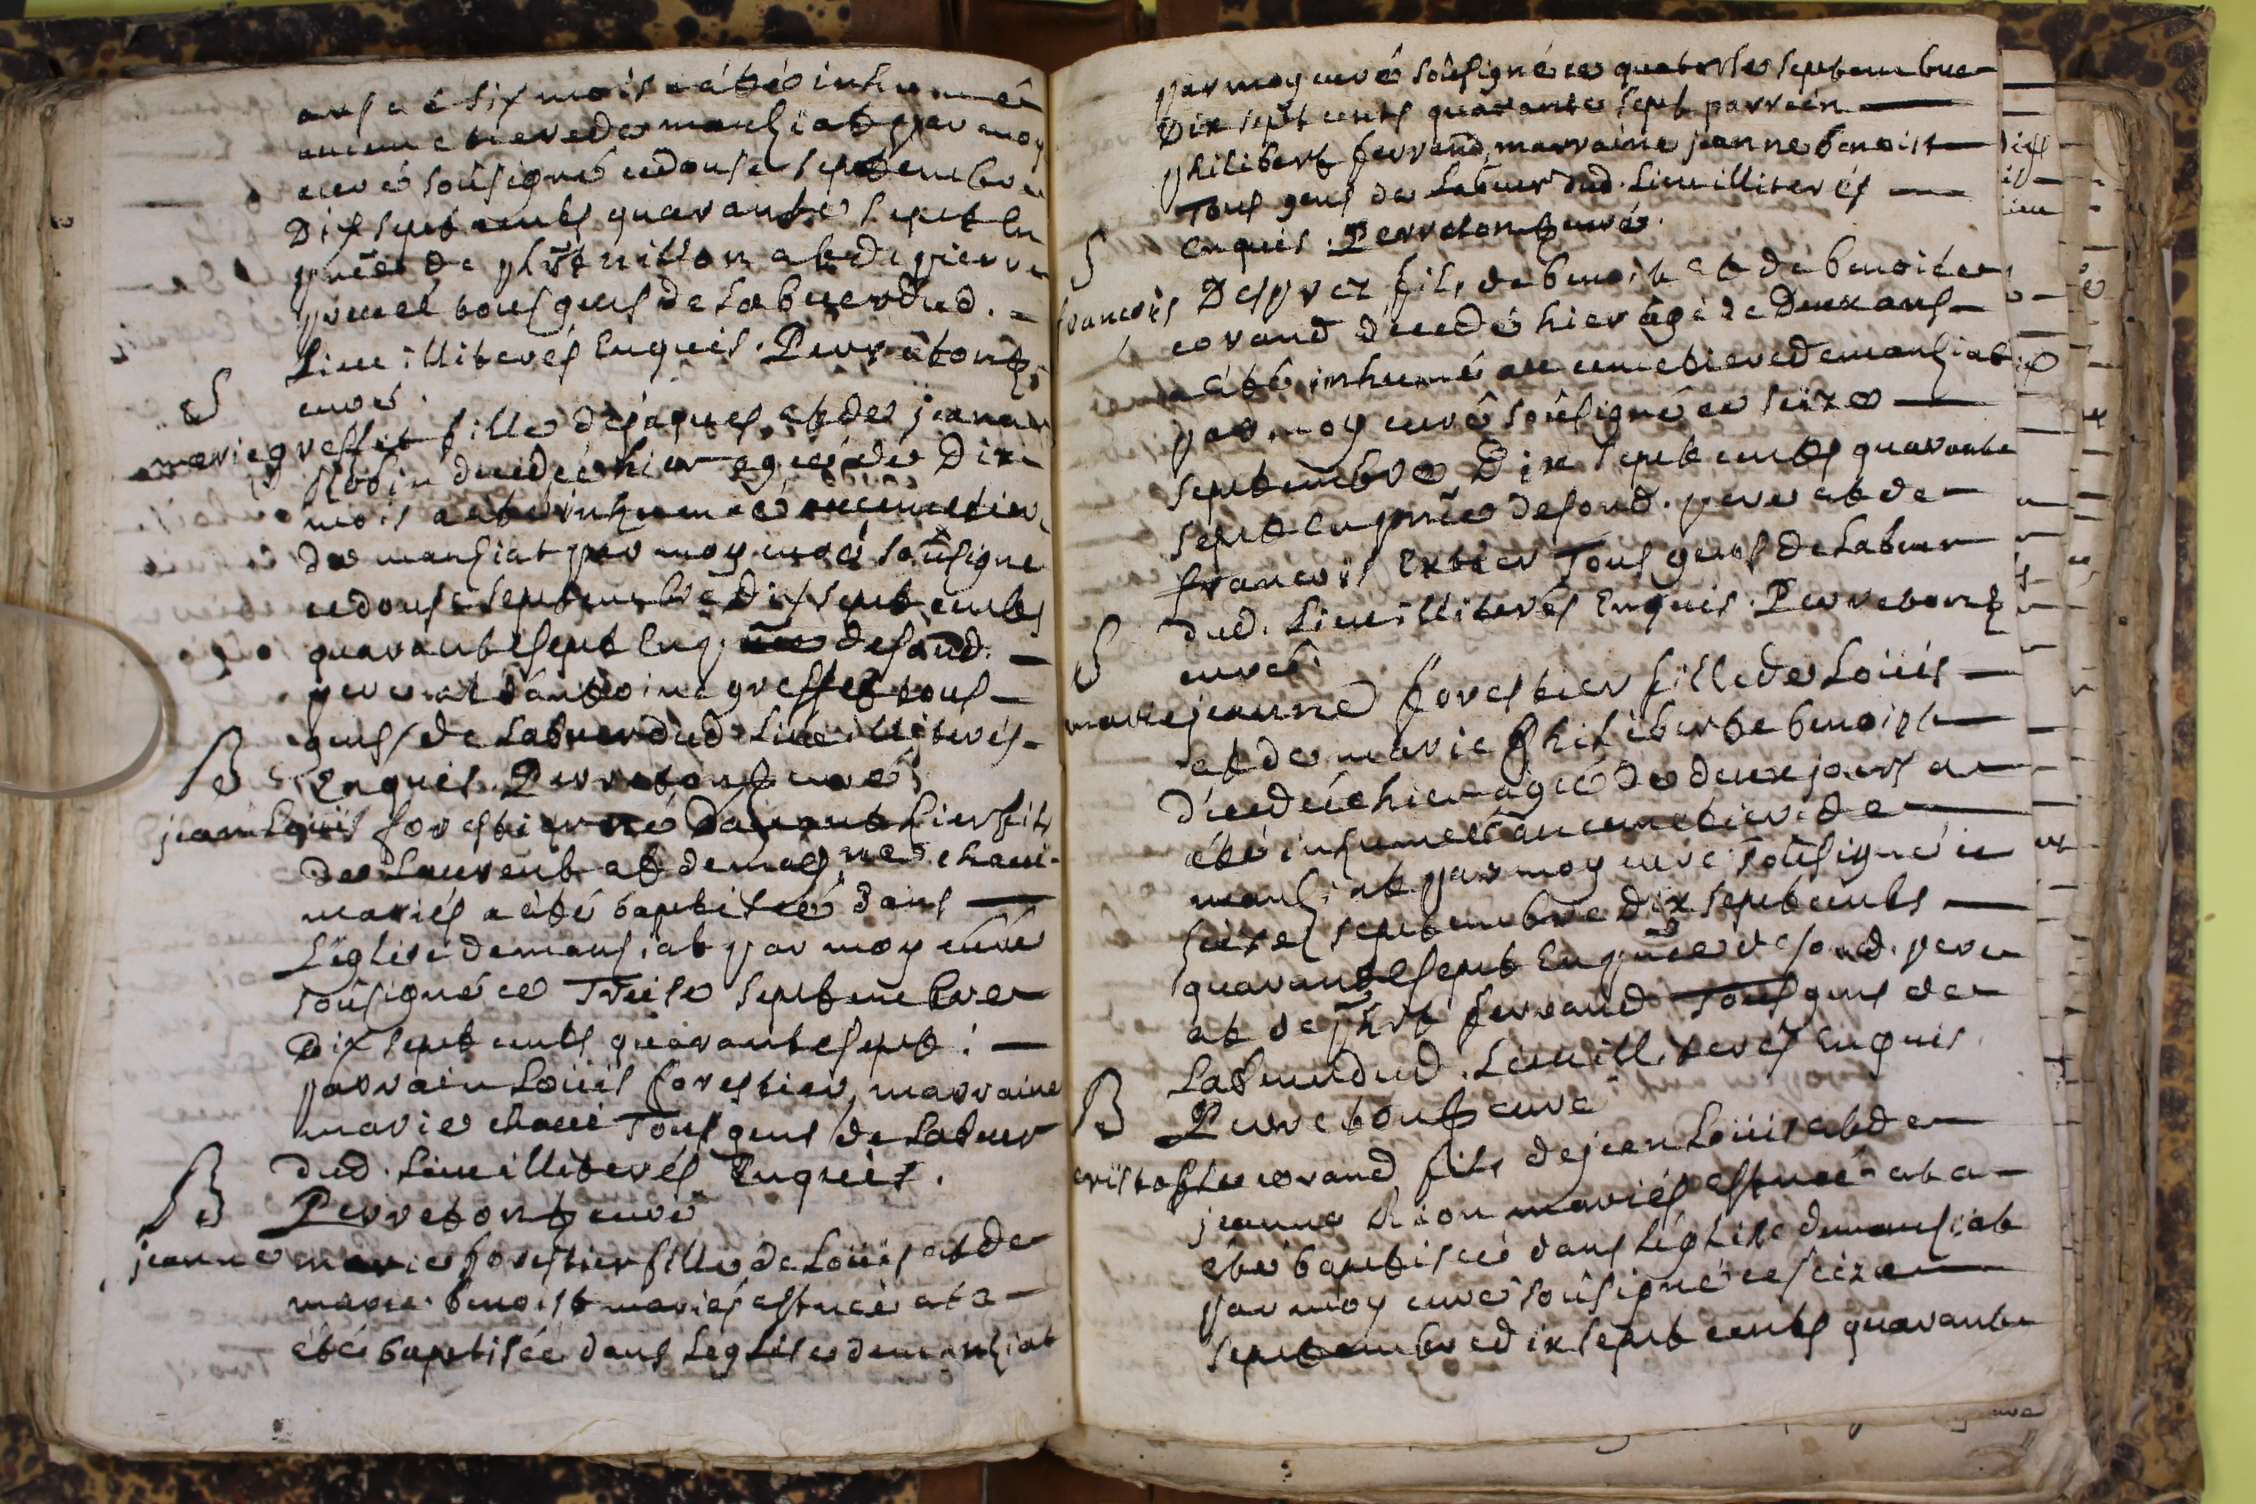 ans et six mois a été inhumé
au cimetiere de manziat par moy
curé soûsigné ce douse septembre
Dix sept cents quarante sept En
pñce de phrt nitton et de pierre
pruel tous gens de Labuer dud. -
Lieu illiterés Enquis. Perretonz,
curé.
S
marie greffet fille de jaques, et de jeanne
Robin decedée hier agée de Dix
mois a eté inhumée au cimetiere
de manziat par moy curé soûsigné
ce douse septembre Dix sept cents
quarante sept En pñce desond. -
pere et d'antoine greffet tous -
gens de Labuer dud. Lieu illiterés -
Enquis. Perretonz curé
B
jean Loüis forestier né Dajant hier fils
de Laurent et de marie chaué
mariés a été baptisé dans -
L'église de manziat par moy curé
soûsigné ce Treise septembre
Dix sept cents quarante sept : -
parrain Loüis forestier, marraine
marie chaué Tous gens de Labuer
dud. Lieu illiterés Enquis.
Perretonz curé
B
jeanne marie forestier fille de Loüis et de
marie benoist mariés est née et a -
été baptisée dans L'église de manziat
par moy curé soûsigné ce quatorse septembre
Dix sept cents quarante sept parrein -
philibert ferrand, marraine jeanne benoist -
Tous gens de Labuer dud. Lieu illiterés -
enquis. Perretonz curé.
S
francois Desprez fils de benoit et de benoite
corand décedé hier agé de Deux ans -
a été inhumé au cimetiere de manziat
par moy curé soûsigné ce seize -
septembre Dix sept cents quarante
sept En pñce desond. pere et de -
francois Extier Tous gens de Labuer
dud. Lieu illiterés Enquis. Perretonz
curé.
S
marie jeanne forestier fille de Loüis -
et de marie philiberte benoist -
décedée hier agée de deux jours a -
été inhumée au cimetiere de -
manziat par moy curé soûsigné ce
seize septembre dix sept cents -
quarante sept En pñce desond. pere
et de phrt ferrand Tous gens de -
Labuer dud. Lieu illiterés Enquis.
Perretonz curé
B
cristophle corand fils de jean Loüis et de -
jeanne Chion mariés est né et a -
été baptisé dans L'église de manziat
par moy curé soûsigné ce seize -
septembre dix sept cents quarante